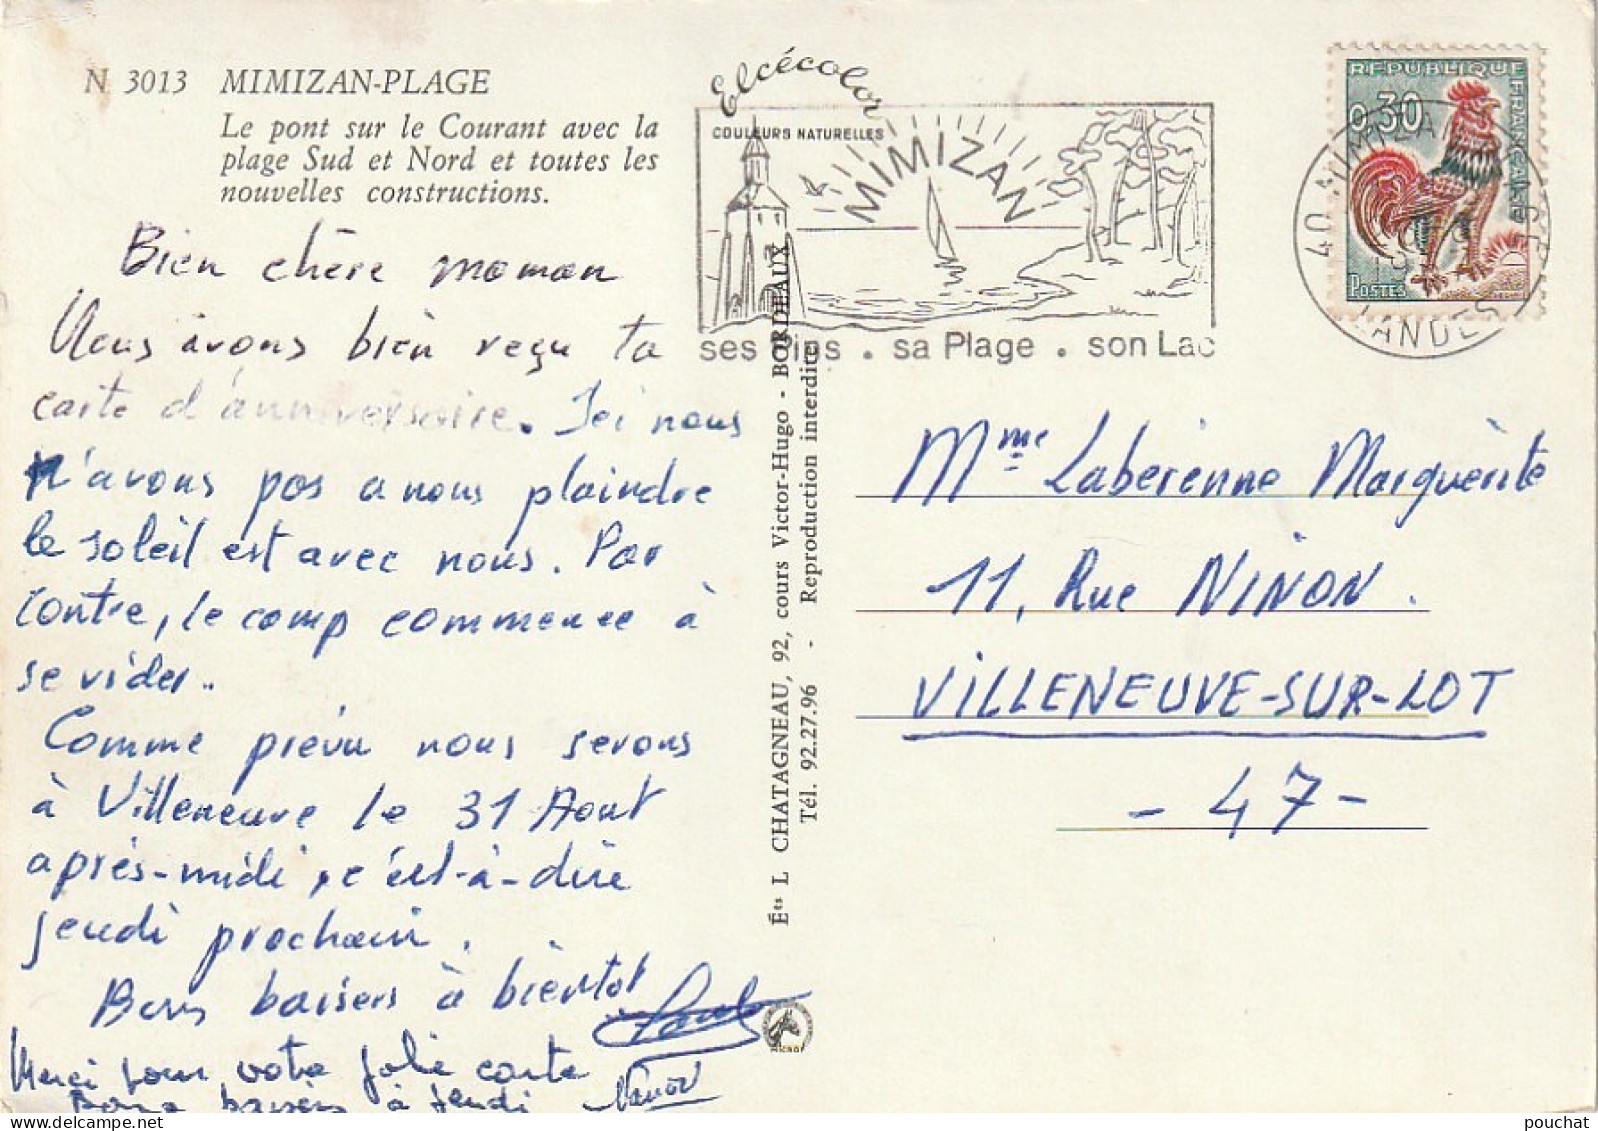 N 3013 MIMIZAN-PLAGE
Le pont sur le Courant avec la
plage Sud et Nord et toutes les
nouvelles constructions.
Bien chère maman
Nous avons bien reçu ta
carte d'anniversaire. Ici nous
n'avons pas a nous plaindre
le soleil est avec nous. Par
contre, le camp commence à
se vider.
Comme prévu nous serons
à Villeneuve le 31 Aout
après-midi, c'est-à-dire
jeudi prochain.
Bons baisers à bientot
Merci pour votre jolie carte
Bons baisers à jeudi
Elcécolor
COULEURS NATURELLES
MIMIZAN
ses Pins . sa Plage . son Lac
Éts L CHATAGNEAU, 92, cours Victor-Hugo - BORDEAUX
Tél. 92.27.96 - Reproduction interdite
REPUBLIQUE FRANÇAISE
0,30
POSTES
40 MIMIZAN PLAGE
LANDES
Mme Laberenne Marguerite
11, Rue NINON.
VILLENEUVE-SUR-LOT
- 47 -
pouchat